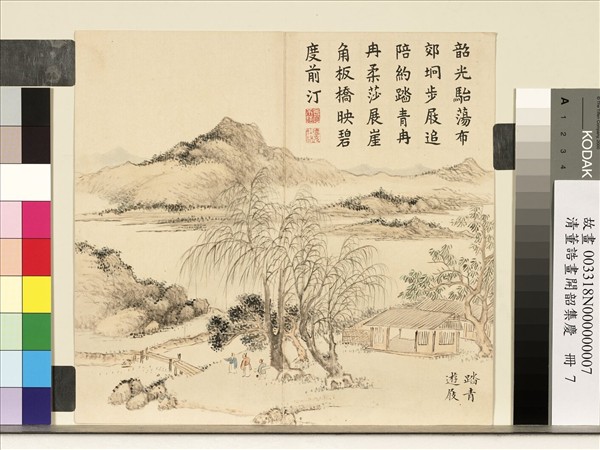 韶光駘蕩布
郊坰步屐追
陪約踏青冉
冉柔莎展崖
角板橋映碧
度前汀
踏青
遊屐
故畫003318N000000007
清董誥畫開韶集慶 冊 7
KODAK
A 1 2 3 4